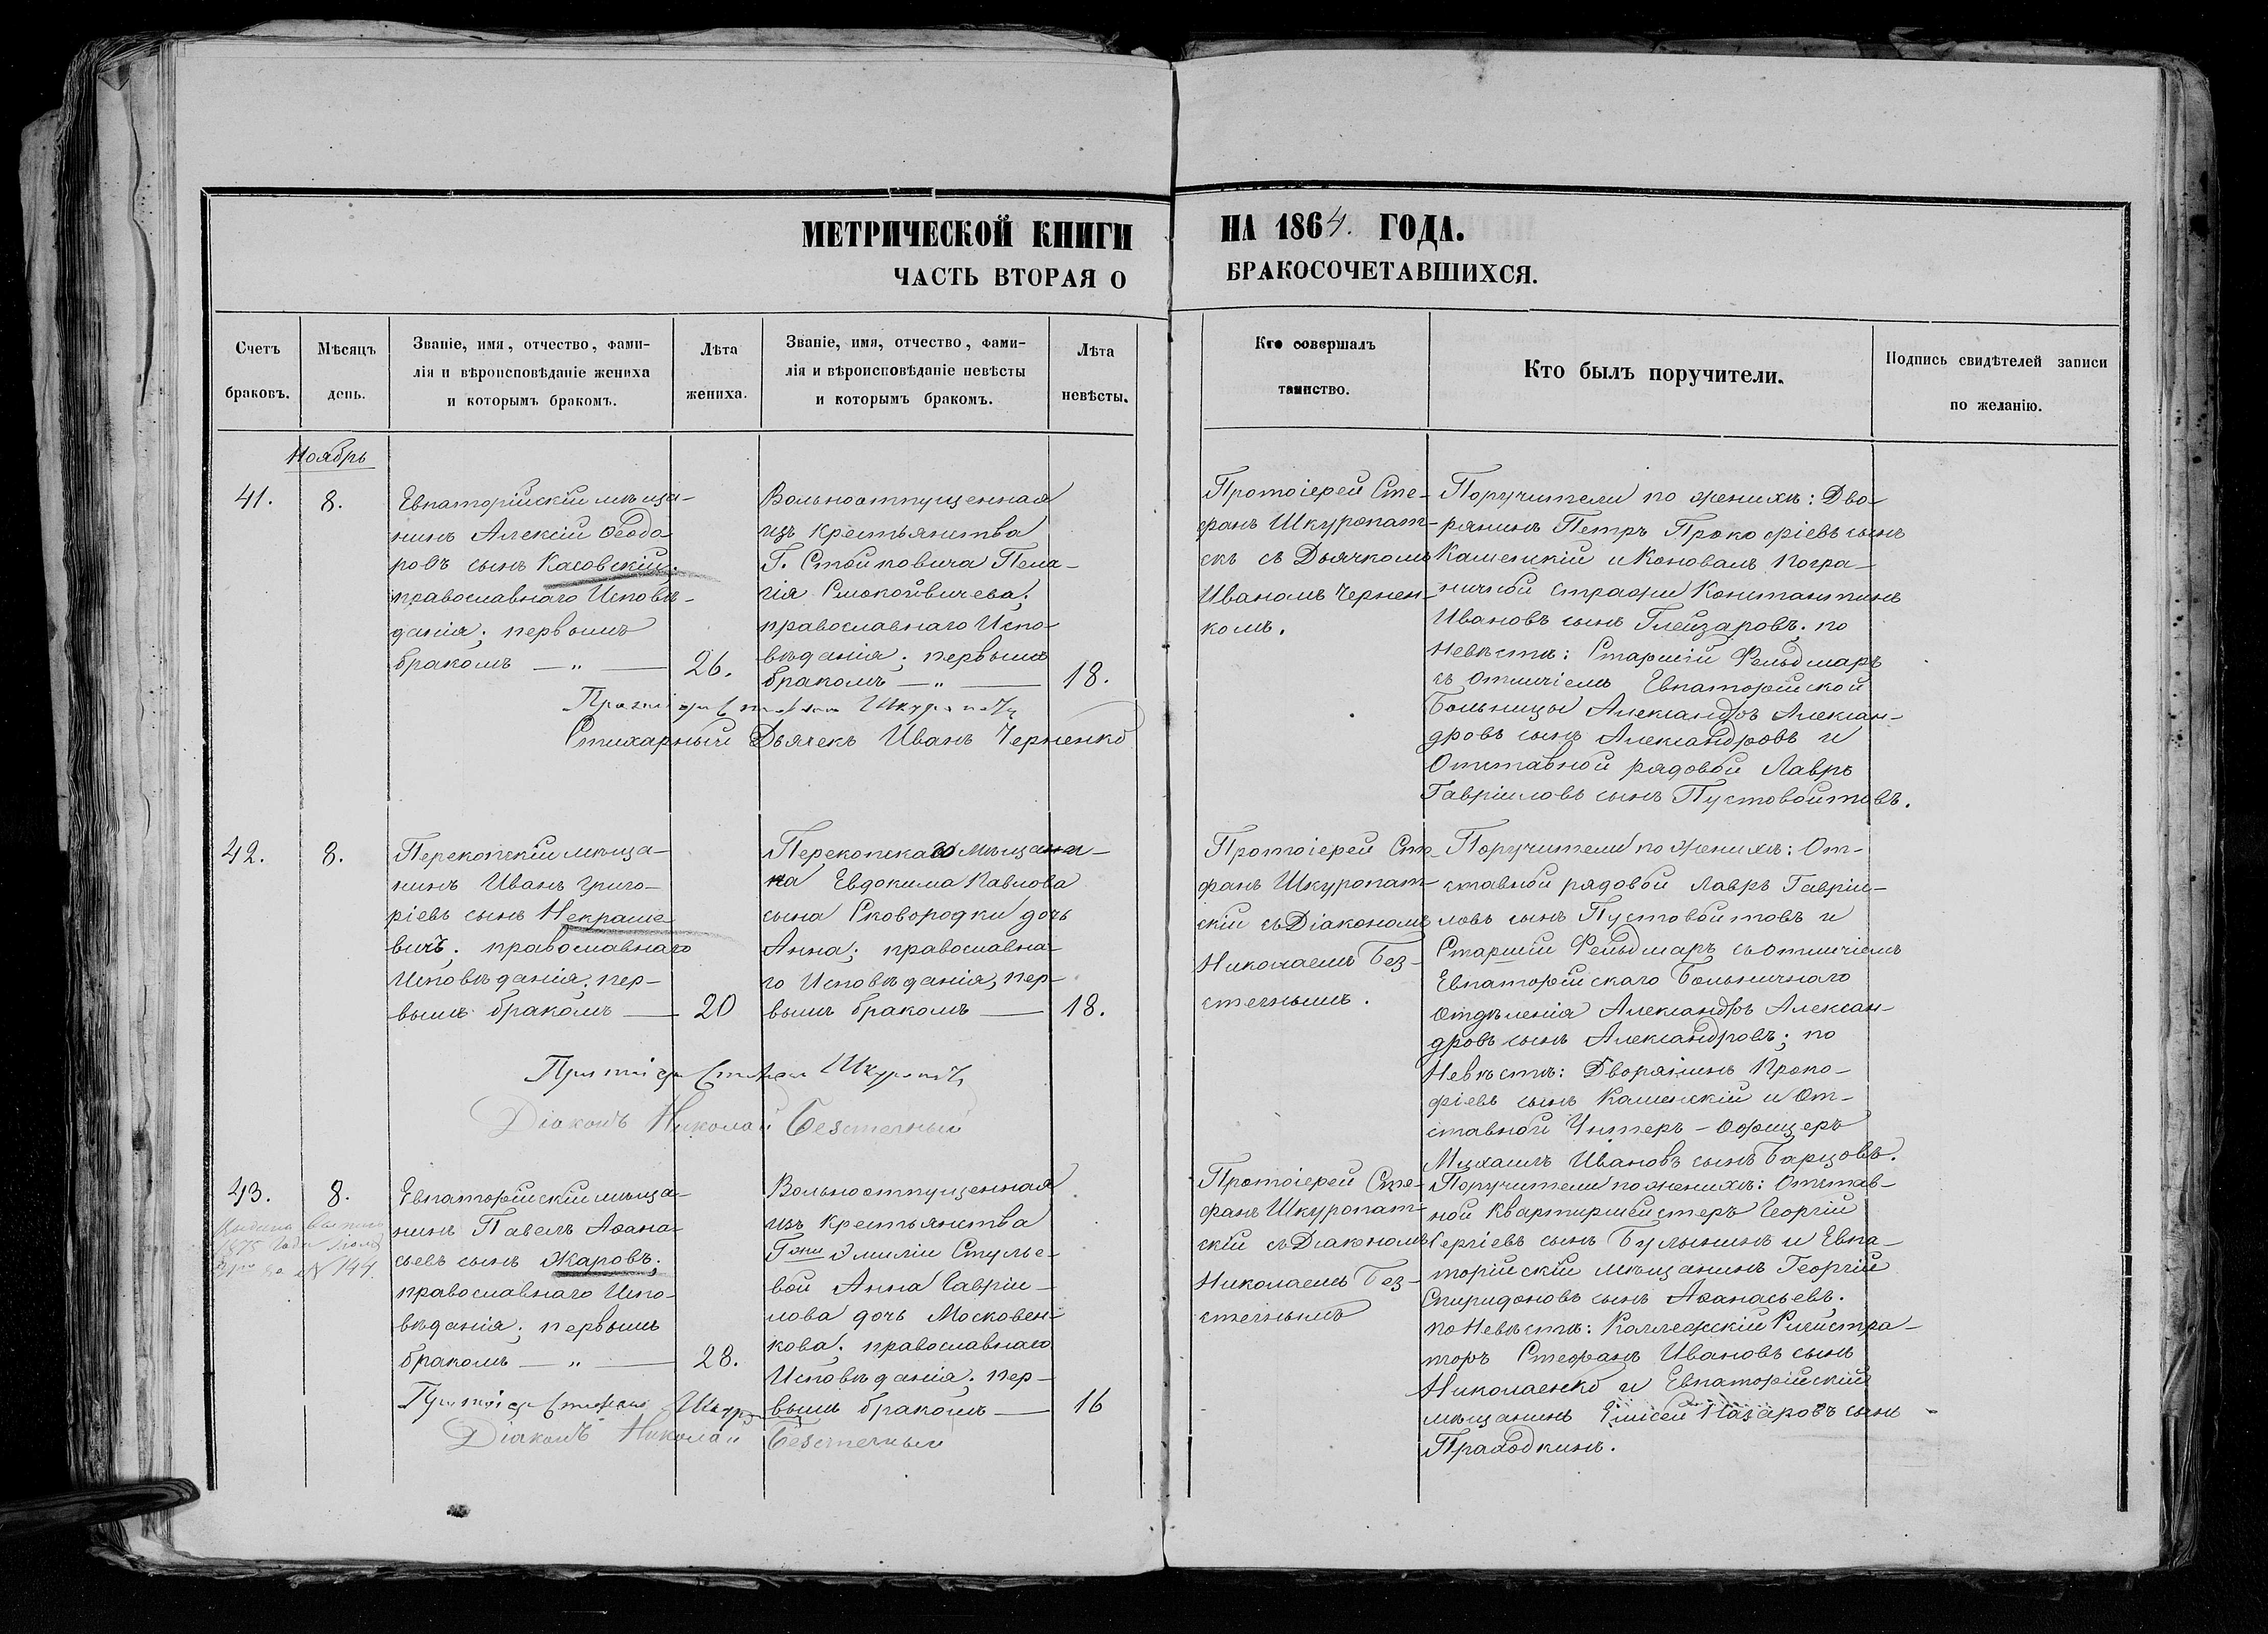 МЕТРИЧЕСКОЙ КНИГИ НА 1864. ГОДА.
ЧАСТЬ ВТОРАЯ О БРАКОСОЧЕТАВШИХСЯ.
Счетъ браковъ.
Мѣсяцъ день.
Званіе, имя, отчество, фами-
лія и вѣроисповѣданіе жениха
и которымъ бракомъ.
Лѣта жениха.
Званіе, имя, отчество, фами-
лія и вѣроисповѣданіе невѣсты
и которымъ бракомъ.
Лѣта невѣсты.
Кто совершалъ таинство.
Кто былъ поручители.
Подпись свидѣтелей записи
по желанію.
Ноябрь
41.
8.
Евпаторійскій мѣща-
нинъ Алексій Ѳеодо
ровъ сынъ Касовскій.
православнаго Исповѣ-
данія; первымъ
бракомъ — „ —
26.
Вольноотпущенная
изъ крестьянства
Г. Стойковича Пела-
гія
православнаго Испо-
вѣданія; первымъ
бракомъ — „ —
18.
Протоіерей Сте-
фанъ Шкуропат-
скъ съ Дьячкомъ
Иваномъ Чернен-
комъ.
Поручители по женихѣ: Дво-
рянинъ Петръ Прокофіевъ сынъ
Каменскій и Коновалъ погра-
ничной стражи Константинъ
Ивановъ сынъ Глейзаровъ. по
Невѣстѣ: Старшій Фельдшаръ
съ отличіемъ Евпаторійской
Больницы Александръ Алексан-
дровъ сынъ Александровъ и
Отставной рядовой Лавръ
Гавріиловъ сынъ Пустовойтовъ.
Стихарный Дьячекъ Иванъ Черненко
42.
8.
Перекопскій мѣща-
нинъ Иванъ Григо-
ріевъ сынъ Некраше
вичъ; православнаго
Исповѣданія; пер-
вымъ бракомъ —
20
Перекопскаго мѣщани-
на Евдокима Павлова
сына Сковородки дочь
Анна; православна-
го Исповѣданія, пер-
вымъ бракомъ —
18.
Протоіерей Сте-
фанъ Шкуропат-
скій съ Діакономъ
Николаемъ Без-
стечнымъ.
Поручители по женихѣ: От-
ставной рядовой Лавръ Гавріи-
ловъ сынъ Пустовойтовъ и
Старшій Фельдшаръ съ отличіемъ
Евпаторійскаго Больничнаго
Отдѣленія Александръ Алексан-
дровъ сынъ Александровъ; по
Невѣстѣ: Дворянинъ Проко-
фіевъ сынъ Каменскій и От-
ставной Унтеръ-Офицеръ
Михаилъ Ивановъ сынъ Барцовъ.
Діаконъ Николай Безстечный
43.
8.
№ 144.
Евпаторійскій мѣща-
нинъ Павелъ Аѳана-
сьевъ сынъ Жаровъ;
православнаго Испо-
вѣданія; первымъ
бракомъ — „ —
28.
Вольноотпущенная
изъ крестьянства
Гжи Эмиліи Стулье-
вой Анна Гавріи-
лова дочь Московен-
кова; православнаго
Исповѣданія; пер-
вымъ бракомъ —
16
Протоіерей Сте-
фанъ Шкуропат-
скій съ Діакономъ
Николаемъ Без-
стечнымъ
Поручители по женихѣ: Отстав-
ной Квартирмейстеръ Георгій
Сергіевъ сынъ Булыжинъ и Евпа-
торійскій мѣщанинъ Георгій
Спиридоновъ сынъ Аѳанасьевъ.
по Невѣстѣ: Коллежскій Регистра-
торъ Стефанъ Ивановъ сынъ
Николаенко и Евпаторійскій
мѣщанинъ Елисей Назаровъ сынъ
Праходкинъ.
Діаконъ Николай Безстечный